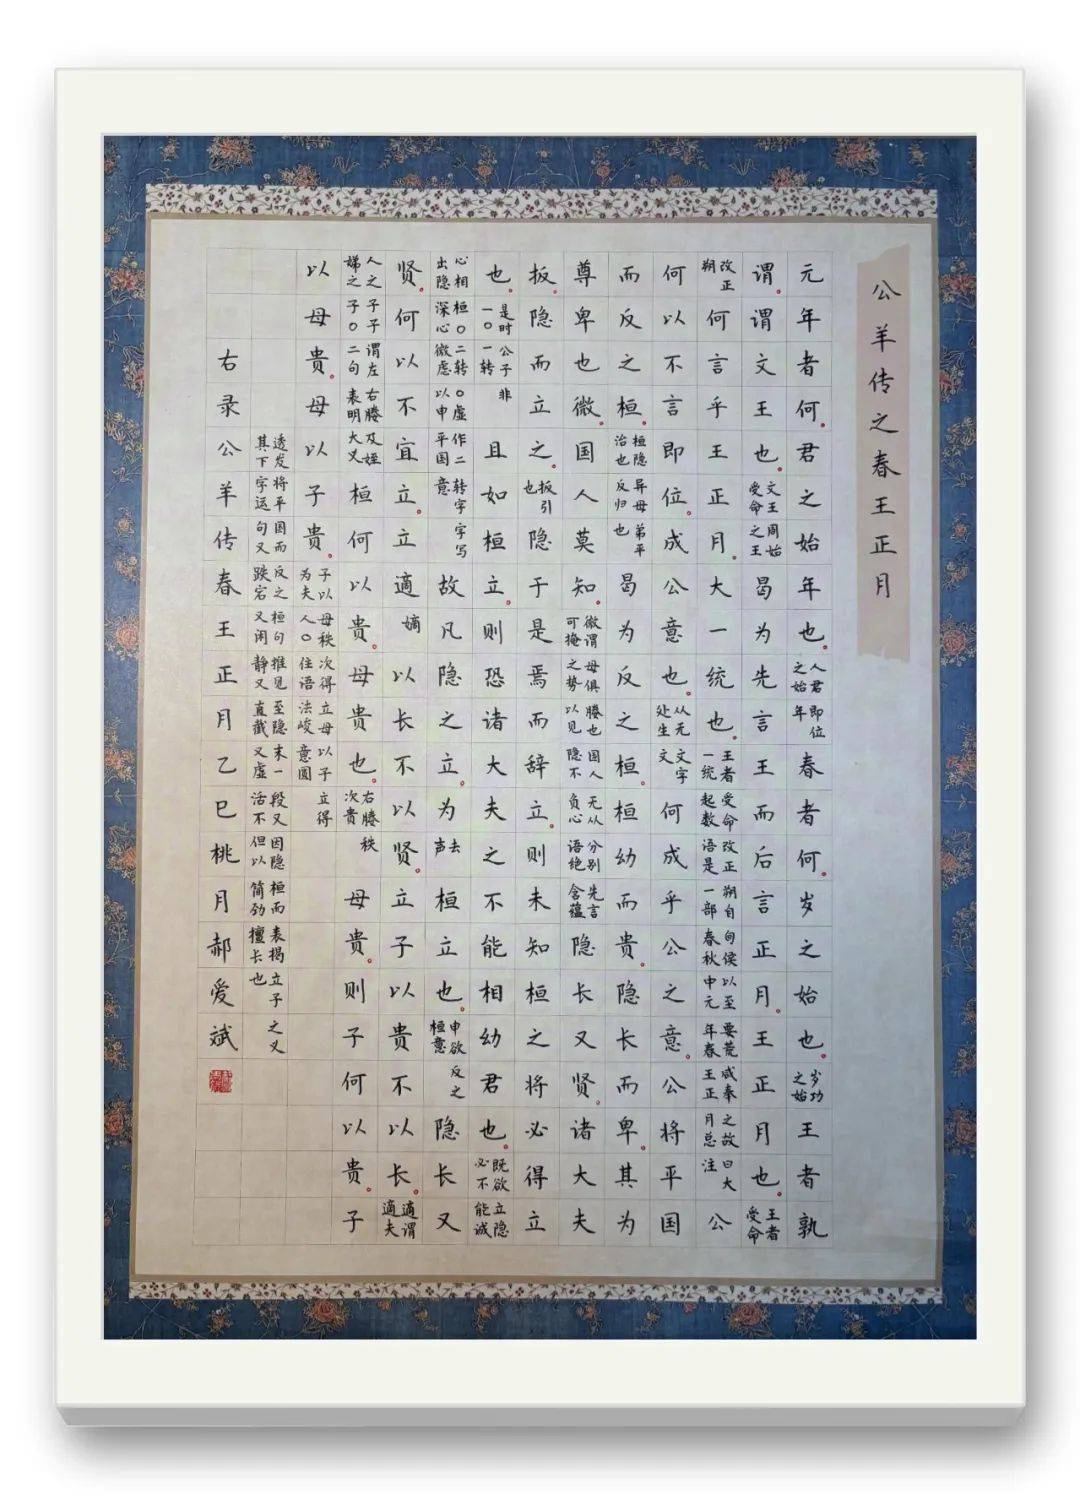 公羊传之春王正月
元年者何君之始年也人君即位之始年春者何岁之始也岁功之始王者孰
谓谓文王也文王周始受命之王曷为先言王而后言正月王正月也王者受命
改正朔何言乎王正月大一统也王者受命改正朔自甸侯以至要荒咸奉之故曰大一统起数语是一部春秋中元年春王正月总注公
何以不言即位成公意也从无文字处生文何成乎公之意公将平国
而反之桓桓隐异母弟平治也反归也曷为反之桓桓幼而贵隐长而卑其为
尊卑也微国人莫知微谓母俱媵也国人无从分别先言可掩之势以见隐不负心语绝含蕴隐长又贤诸大夫
扳隐而立之扳引也隐于是焉而辞立则未知桓之将必得立
也是时公子非一〇一转且如桓立则恐诸大夫之不能相幼君也既欲立隐必不能诚
心相桓〇二转〇虚作二转字写出隐深心微虑以申平国意故凡隐之立为去声桓立也申欲反之桓意隐长又
贤何以不宜立立適嫡以长不以贤立子以贵不以长適谓適夫
人之子子谓左右媵及姪娣之子〇二句表明大义桓何以贵母贵也右媵秩次贵母贵则子何以贵子
以母贵母以子贵子以母秩次得立母以子立得为夫人〇住语法峻意圆
透发将平国而反之桓句推见至隐末一段又因隐桓而表揭立子之义其下字运句又跌宕又闲静又直截又虚活不但以简劲擅长也
右录公羊传春王正月乙巳桃月郝爱斌